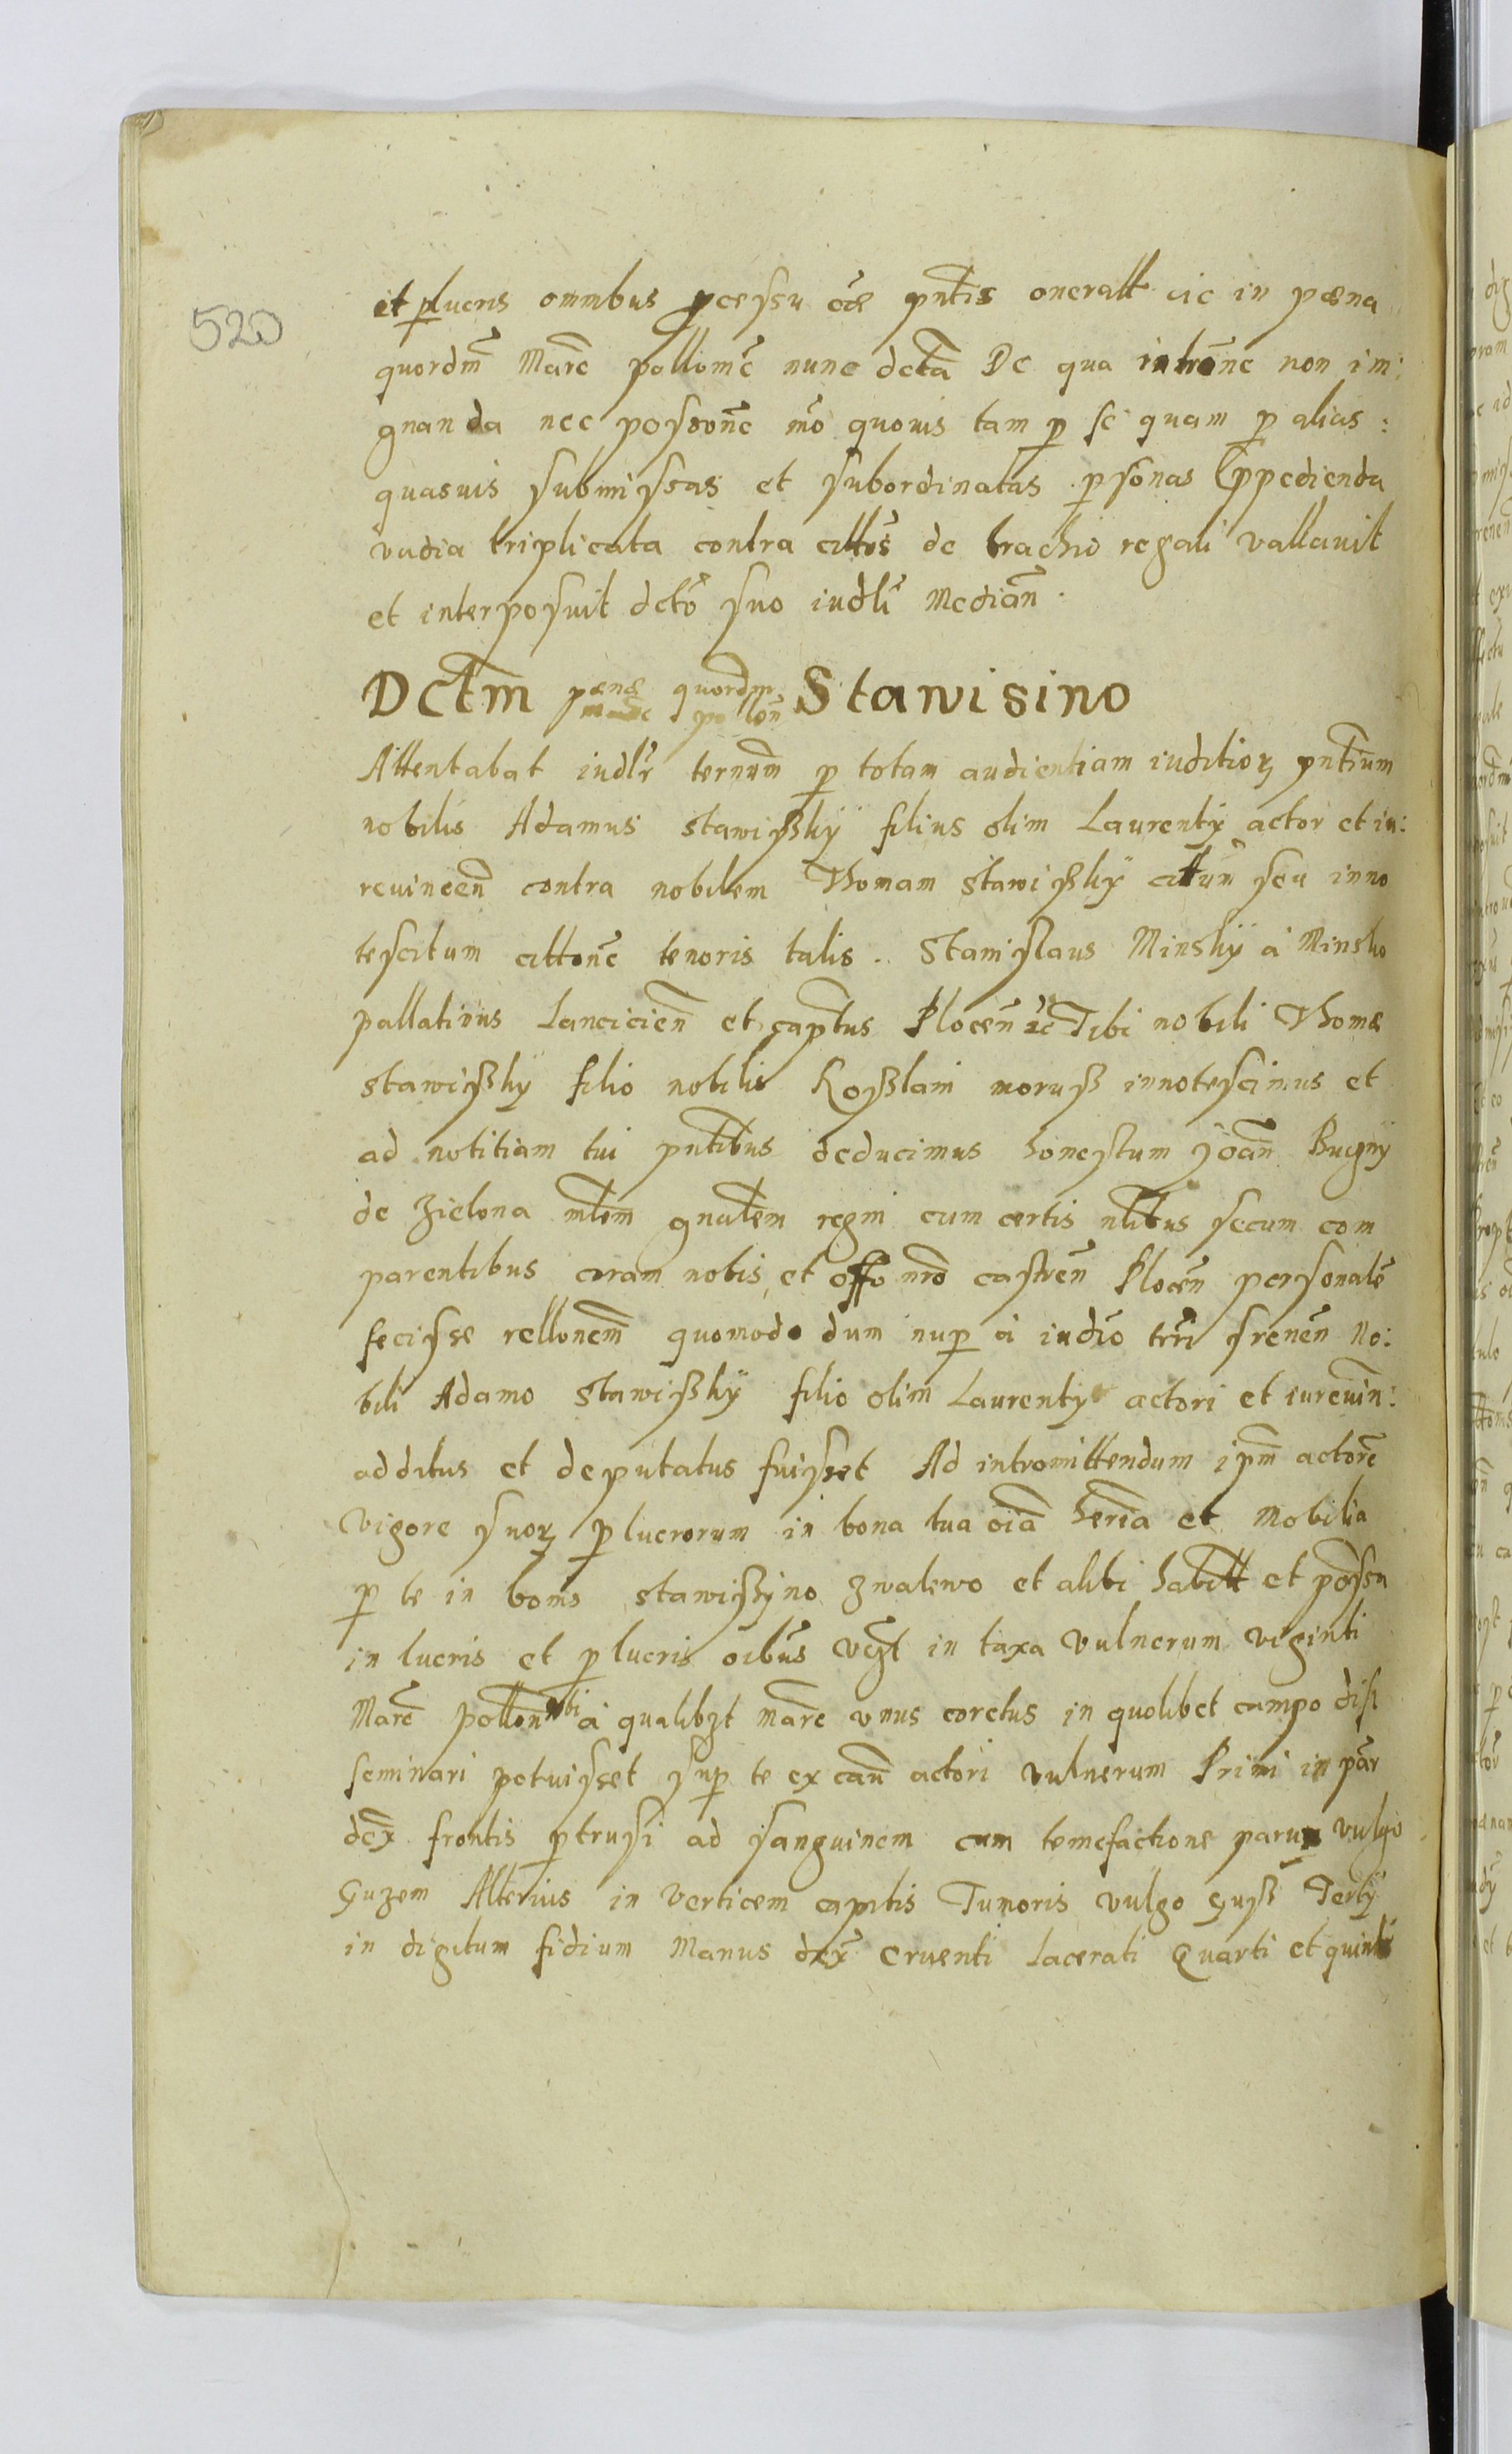 520
et plucris omnibus pcessu cæ pntis oneratt ac in pæna
quordm̄ Marc̄ pollomc̄ nunc dcta De qua introne non im:
gnanda nec possone mō quovis tam p se quam p alias:
quasuis submissas et subordinatas psonas Ippedienda
vadia triplicata contra cittos̄ de brachio regali vallavit
et interposuit dcto suo iudlī Median̄.
Dctm̄ pænæ quordm Stawisino
marc pollon̄
Attentabat iudlr ternum p totam audientiam iuditioꝝ pntium
nobilis Adamus Stawißky filius olim Laurenty actor et iu:
revincen̄ contra nobilem Thomam Stawißky citum seu inno
tescitum cittone tenoris talis. Stanislaus Minsky à Minsko
pallatinus Lancicien̄ et captus Plocen̄ ac Tibi nobili Thomæ
Stawißky filio nobilis Roßlani moruß innotescimus et
ad notitiam tui pntibus deducimus honestum Joan̄ Bugny
de Zielona mlem gnalem regni cum certis nlibus secum com
parentibus coram nobis et offo nro castren̄ Plocen̄ personale
fecisse rellonem quomodo dum nup a iudio trri srenen̄ No:
bili Adamo Stawißky filio olim Laurenty actori et iurevin:
additus et deputatus fuisset Ad intromittendum ipm actore
vigore suoꝝ plucrorum in bona tua oia heria et Mobilia
p te in bonis Stawißyno Zwalewo et alibi habitt et possn
in lucris et plucris oibus vꝫt in taxa Vulnerum viginti
Marc̄ pollon̄ ubi a qualibꝫt marc vnus coretus in quolibet campo dis
seminari potuisset sup te ex caū actori vulnerum Primi in par
dex̄ frontis ptrusi ad sanguinem cum temefactione parua vulgo
Guzem Alterius in verticem capitis Tumoris vulgo guß Terty
in digitum fidium Manus dex̄ cruenti lacerati Quarti et quinti